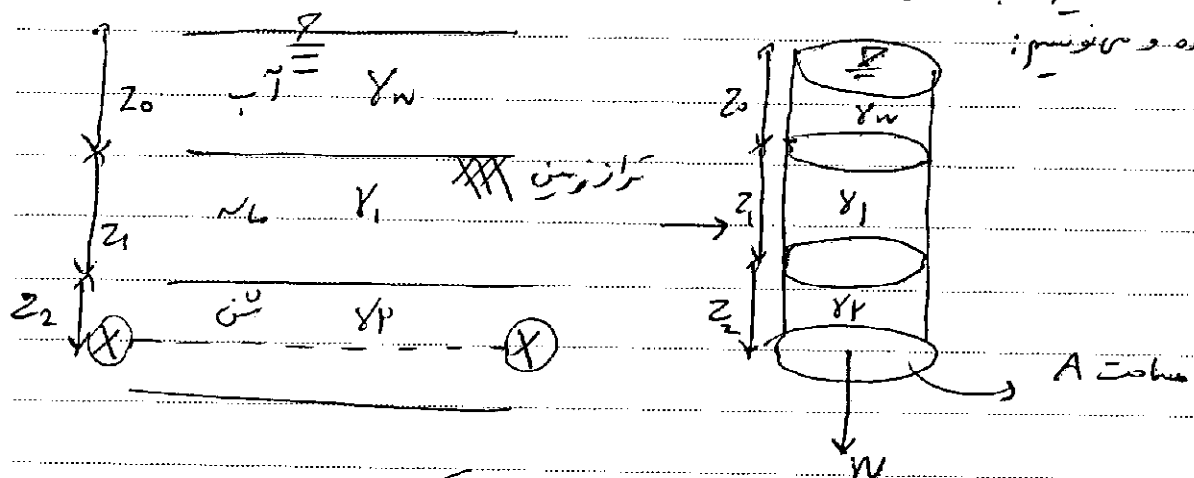 ده و می‌نویسیم:
آب γw
Z0
تراز زمین
ماسه γ1
Z1
شن γ۲
Z2
X X
Z0
γw
Z1
γ1
Z2
γ۲
مساحت A
W